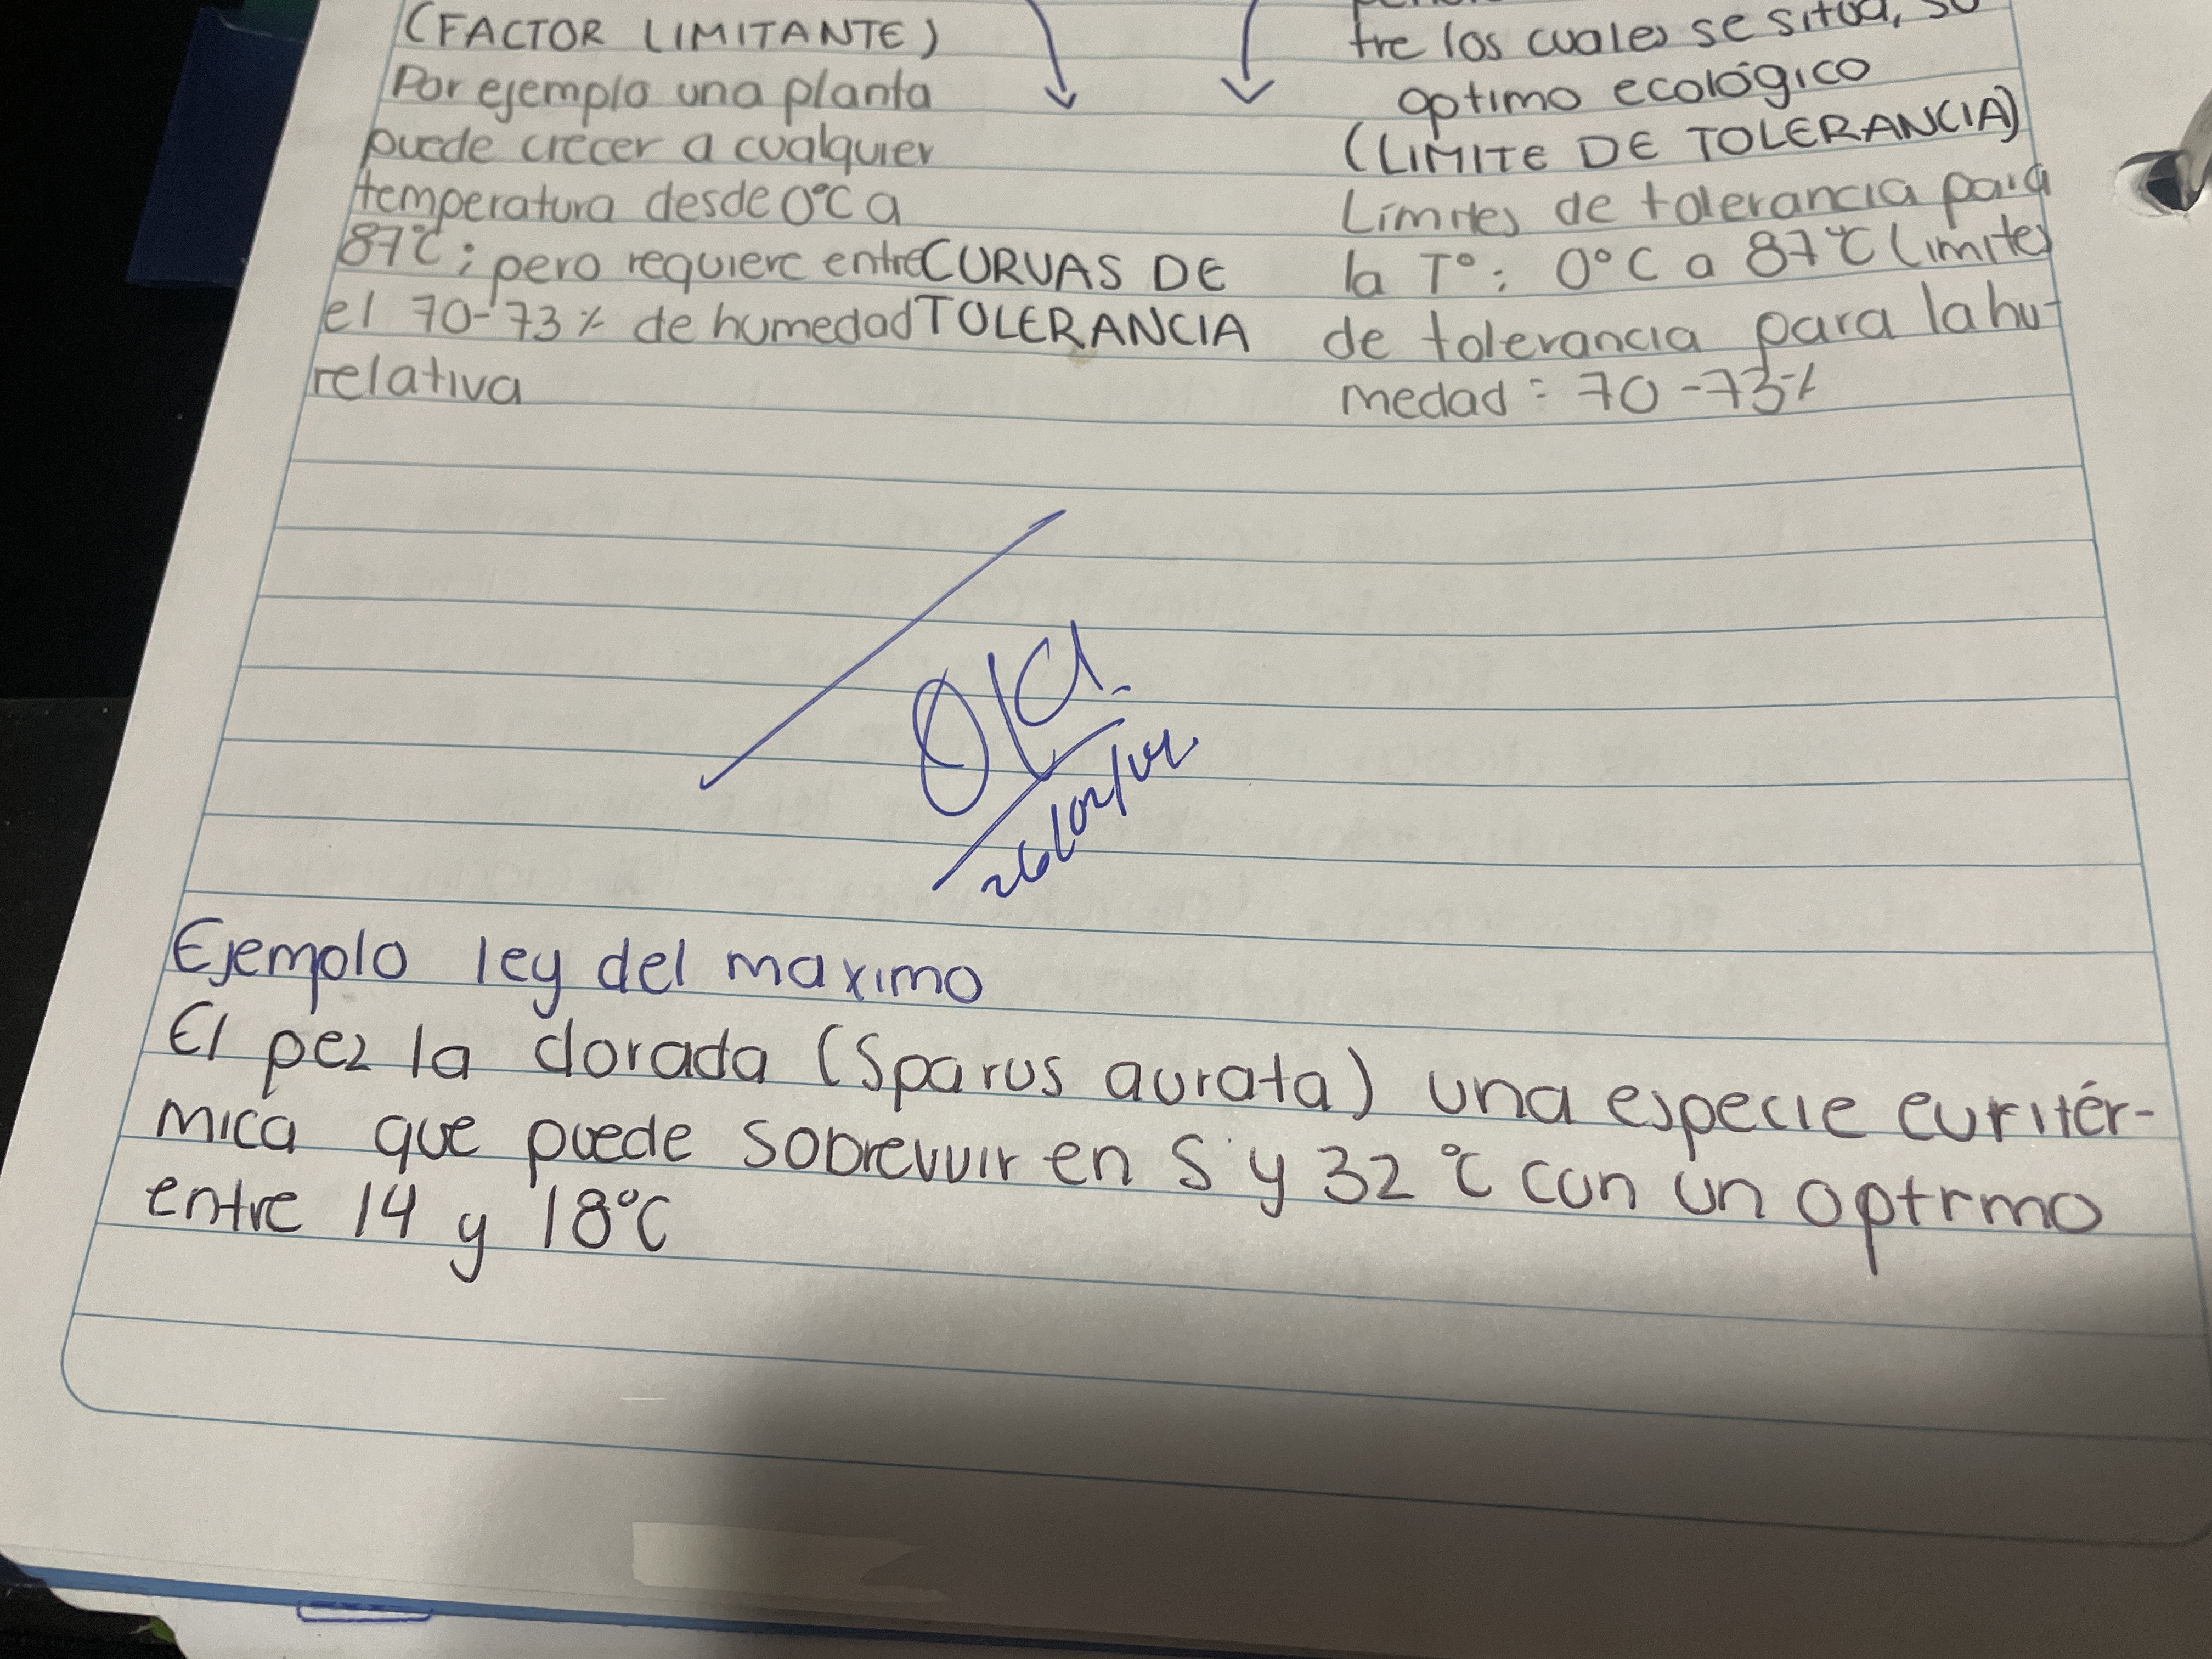 (FACTOR LIMITANTE)
Por ejemplo una planta
puede crecer a cualquier
temperatura desde 0°C a
87°C; pero requiere entre
el 70-73% de humedad
relativa
CURVAS DE
TOLERANCIA
tre los cuales se sitúa, su
optimo ecológico
(LIMITE DE TOLERANCIA)
Límites de tolerancia para
la T°: 0°C a 87°C Limites
de tolerancia para la hu-
medad: 70-73%
Ejemplo ley del maximo
El pez la dorada (Sparus aurata) una especie euritér-
mica que puede sobrevivir en 5 y 32 °C con un optimo
entre 14 y 18°C